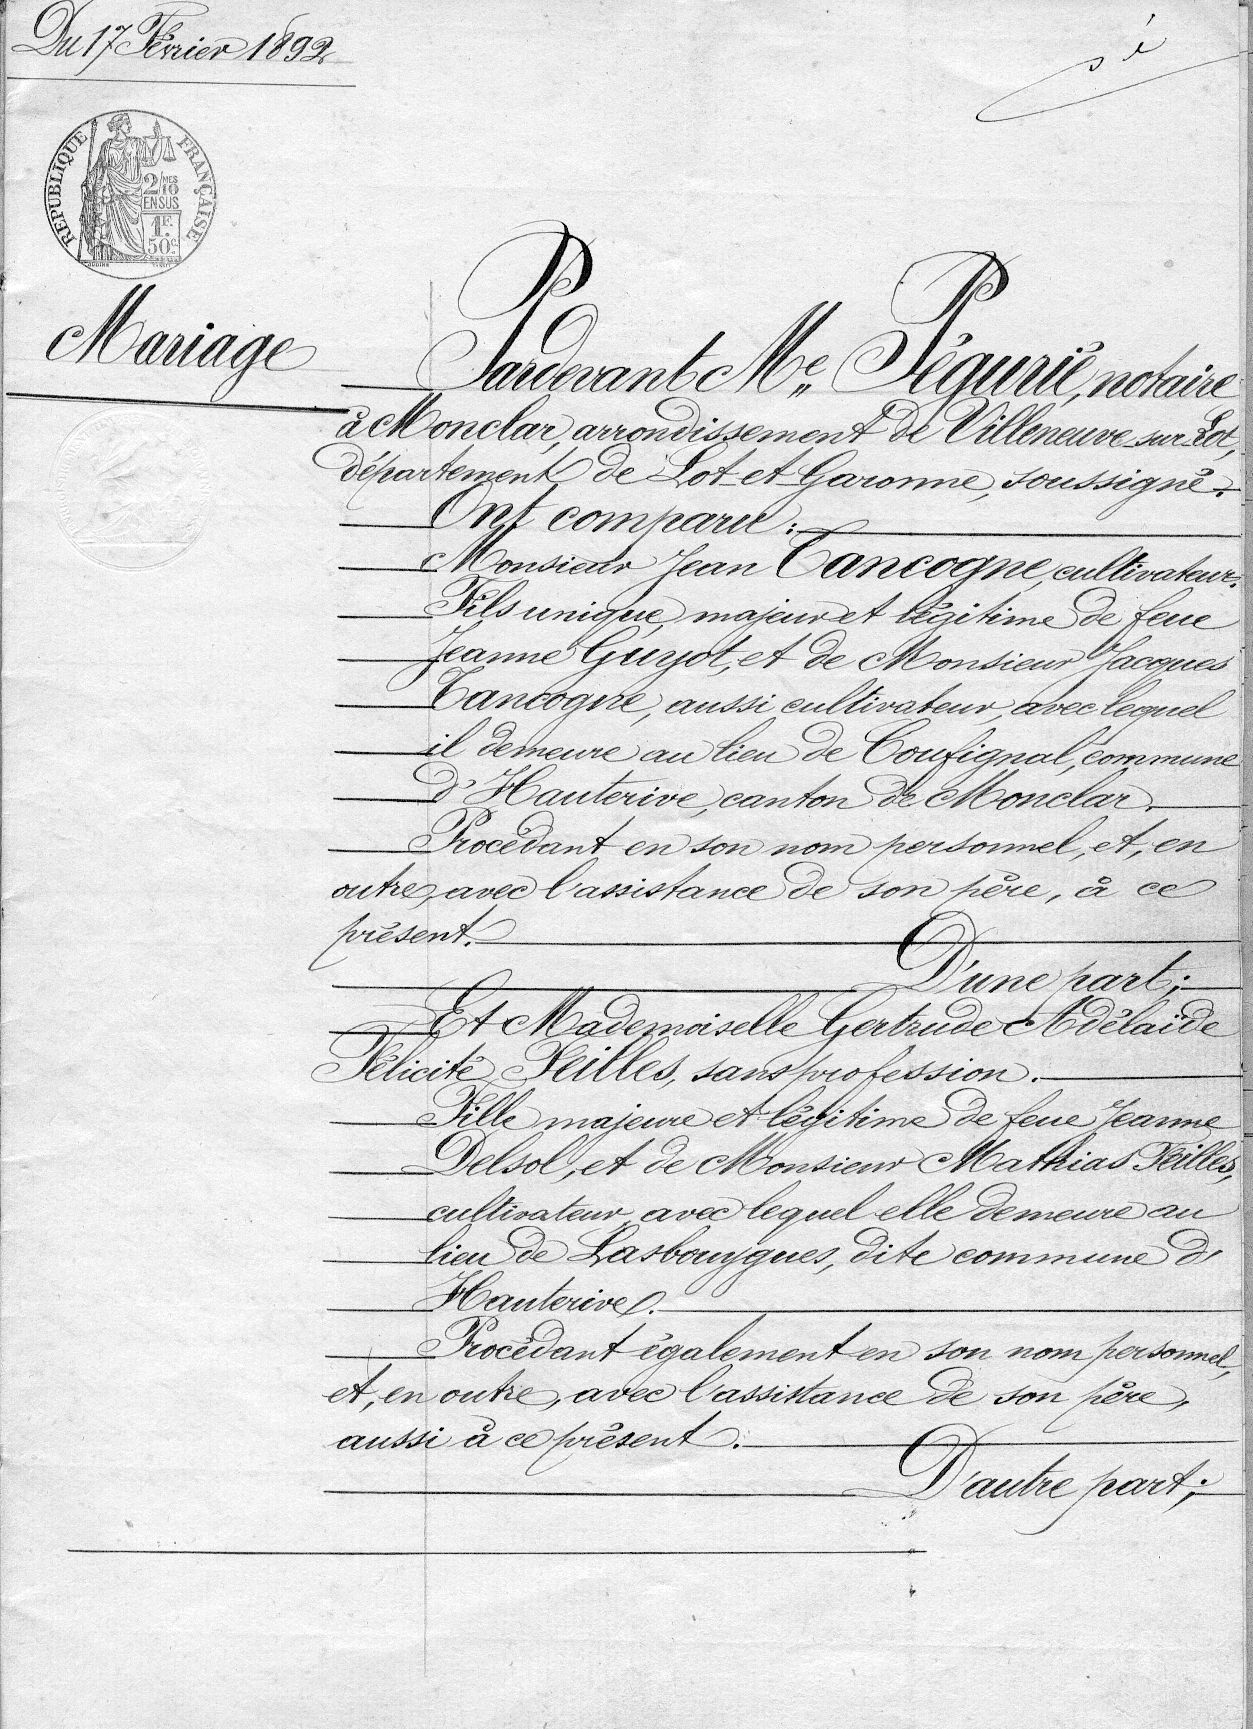 Du 17 Février 1892
RÉPUBLIQUE FRANÇAISE
2/MES 10
EN SUS
1F.
50c.
Mariage
Pardevant Me Pégurié, notaire
à Monclar, arrondissement de Villeneuve-sur-Lot,
département de Lot-et-Garonne, soussigné.
Ont comparu :
Monsieur Jean Tancogne, cultivateur.
Fils unique, majeur et légitime de feue
Jeanne Guyot, et de Monsieur Jacques
Tancogne, aussi cultivateur, avec lequel
il demeure au lieu de Coufignal, commune
d'Hauterive, canton de Monclar.
Procédant en son nom personnel, et, en
outre, avec l'assistance de son père, à ce
présent.
D'une part;
Et Mademoiselle Gertrude Adélaïde
Félicité Feilles, sans profession.
Fille majeure et légitime de feue Jeanne
Delsol, et de Monsieur Mathias Feilles,
cultivateur, avec lequel elle demeure au
lieu de Lasbouygues, dite commune d'
Hauterive.
Procédant également en son nom personnel,
et, en outre, avec l'assistance de son père,
aussi à ce présent.
D'autre part;